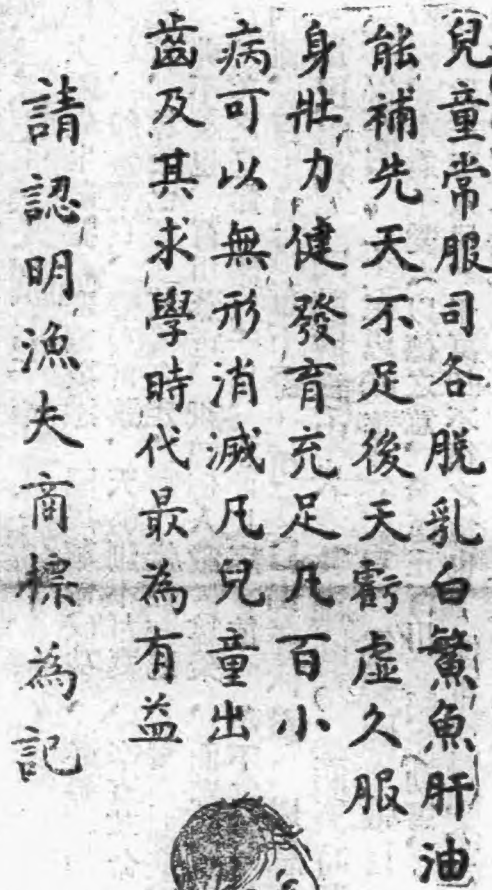 兒童常服司各脫乳白鰵魚肝油
能補先天不足後天虧虛久服
身壯力健發育充足凡百小
病可以無形消滅凡兒童出
齒及其求學時代最為有益
請認明漁夫商標為記